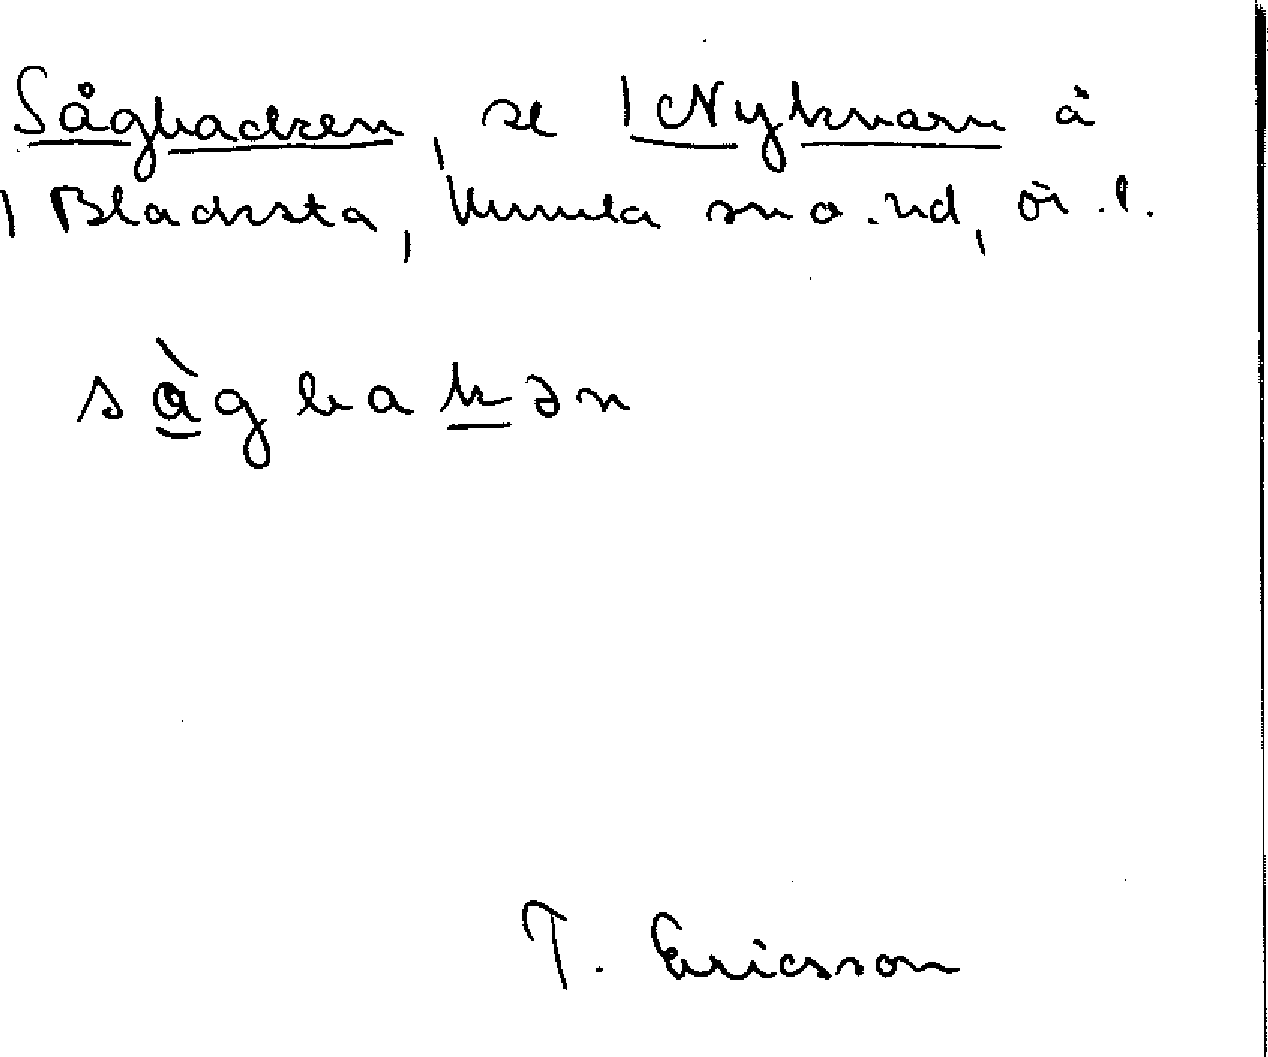 Sågbacken, se Nykvarn å
Blacksta, Kumla sn o. hd, ör. l.
sàgbakən
T. Ericsson